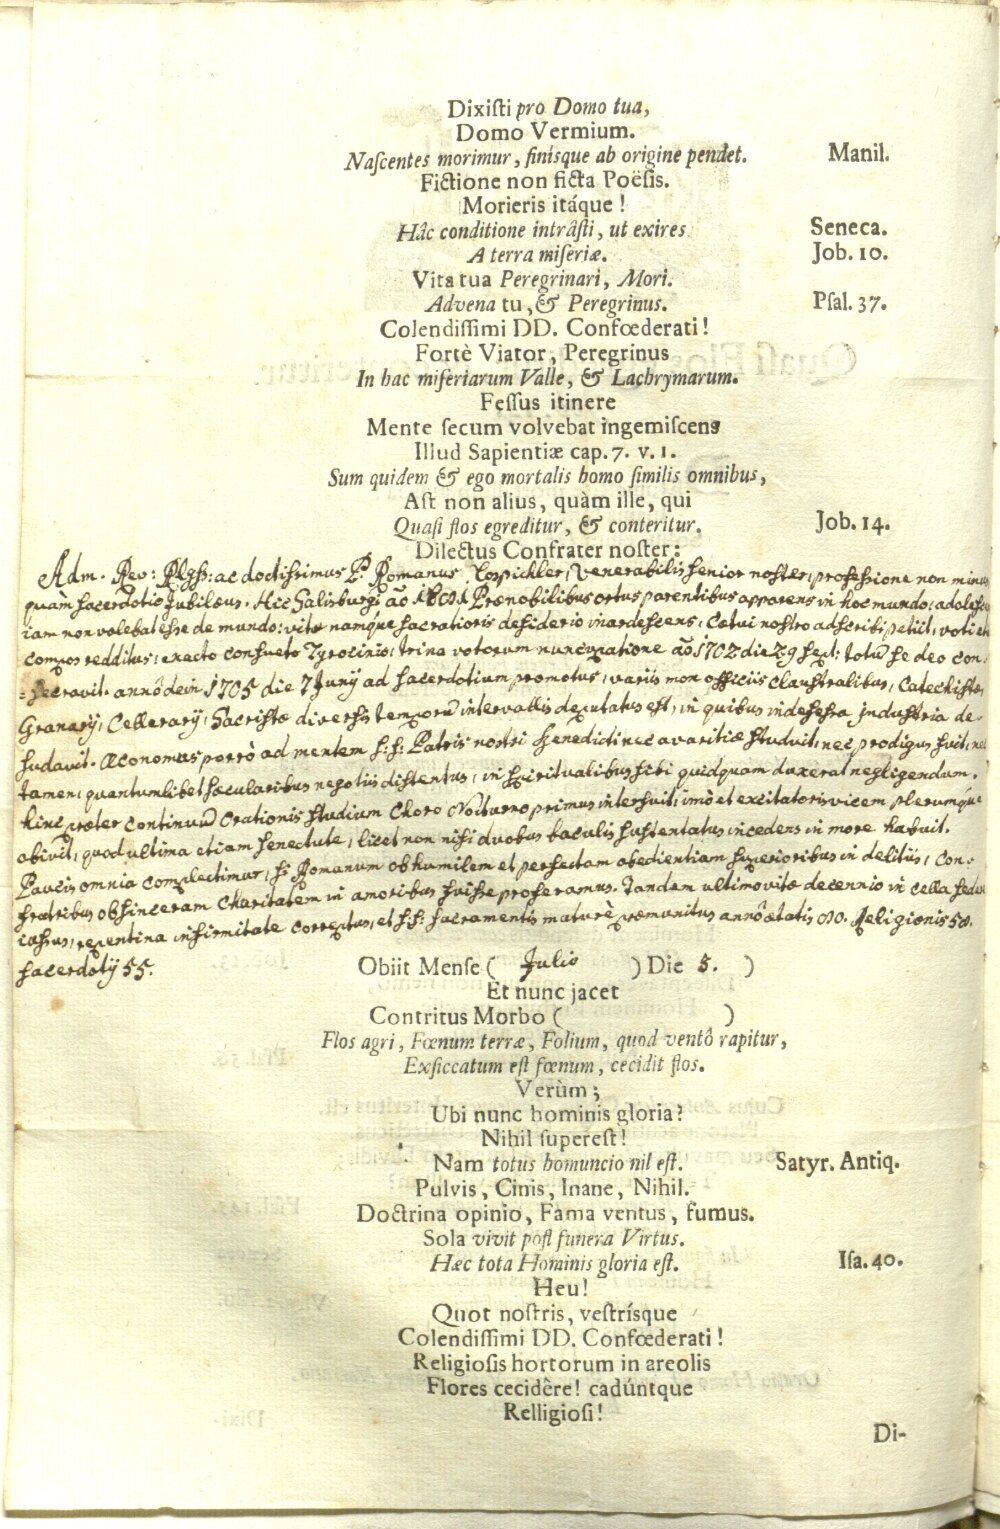 Dixiſti pro Domo tua,
Domo Vermium.
Naſcentes morimur, finisque ab origine pendet. Manil.
Fictione non ficta Poëſis.
Morieris itáque!
Hâc conditione intrâſti, ut exires. Seneca.
A terra miſeriæ. Job. 10.
Vita tua Peregrinari, Mori.
Advena tu, & Peregrinus. Pſal. 37.
Colendiſſimi DD. Confœderati!
Fortè Viator, Peregrinus
In hac miſeriarum Valle, & Lachrymarum.
Feſſus itinere
Mente ſecum volvebat ingemiſcens
Illud Sapientiæ cap. 7. v. 1.
Sum quidem & ego mortalis homo ſimilis omnibus,
Aſt non alius, quàm ille, qui
Quaſi flos egreditur, & conteritur. Job. 14.
Dilectus Confrater noſter:
Adm. Rev: Religss: ac doctissimus P. Romanus Cospichler, Venerabilis senior noster, professione non minus
quàm sacerdotio Jubilæus. Hic Salisburgi aõ Prænobilibus ortus parentibus apparens in hoc mundo: adolesc
iam non volebat esse de mundo: vitæ namque sacratioris desiderio inardescens, Cœtui nostro adscribi petiit, voti
compos redditus, exacto consueto Tyrocinio, trina votorum nuncupatione aõ 1702 die 29 sept: totũ se deo con:
=secravit. annô dein 1705 die 7 Junÿ ad sacerdotium promotus, variis mon officiis claustralibus, Catechistæ,
Granarÿ, Cellerarÿ, Sacristæ diversis temporũ intervallis deputatus est, in quibus indefessa industria de-
sudavit. Œconomus porrò ad mentem s: s: Patris nostri Benedicti nec avaritiæ studuit, nec prodigus fuit, nec
tamen, quantumlibet sæcularibus negotiis distentus, in spiritualibus sibi quidquam duxerat negligendum.
hinc præter continuum orationis studium Choro Nocturno primus interfuit, imò et excitatoris vicem plerumque
obivit, quod ultima etiam senectute, licet non nisi duobus baculis sustentatus incedens in more habuit.
Paucis omnia complectimur, si Romanum ob humilem et perfectam obedientiam superioribus in delitiis, con-
fratribus ob sinceram Charitatem in amoribus fuisse proferamus. Tandem ultimo vitæ decennio in cella
cassus, repentina infirmitate correptus, et s: s: sacramentis maturè præmunitus annô ætatis Religionis 58.
sacerdotÿ 55.
Obiit Menſe ( Julio ) Die 5. )
Et nunc jacet
Contritus Morbo ( )
Flos agri, Fœnum terræ, Folium, quod ventô rapitur,
Exſiccatum eſt fœnum, cecidit flos.
Verùm;
Ubi nunc hominis gloria?
Nihil ſupereſt!
Nam totus homuncio nil eſt. Satyr. Antiq.
Pulvis, Cinis, Inane, Nihil.
Doctrina opinio, Fama ventus, fumus.
Sola vivit poſt funera Virtus.
Hæc tota Hominis gloria eſt. Iſa. 40.
Heu!
Quot noſtris, veſtrísque
Colendiſſimi DD. Confœderati!
Religioſis hortorum in areolis
Flores cecidêre! cadúntque
Relligioſi!
Di-